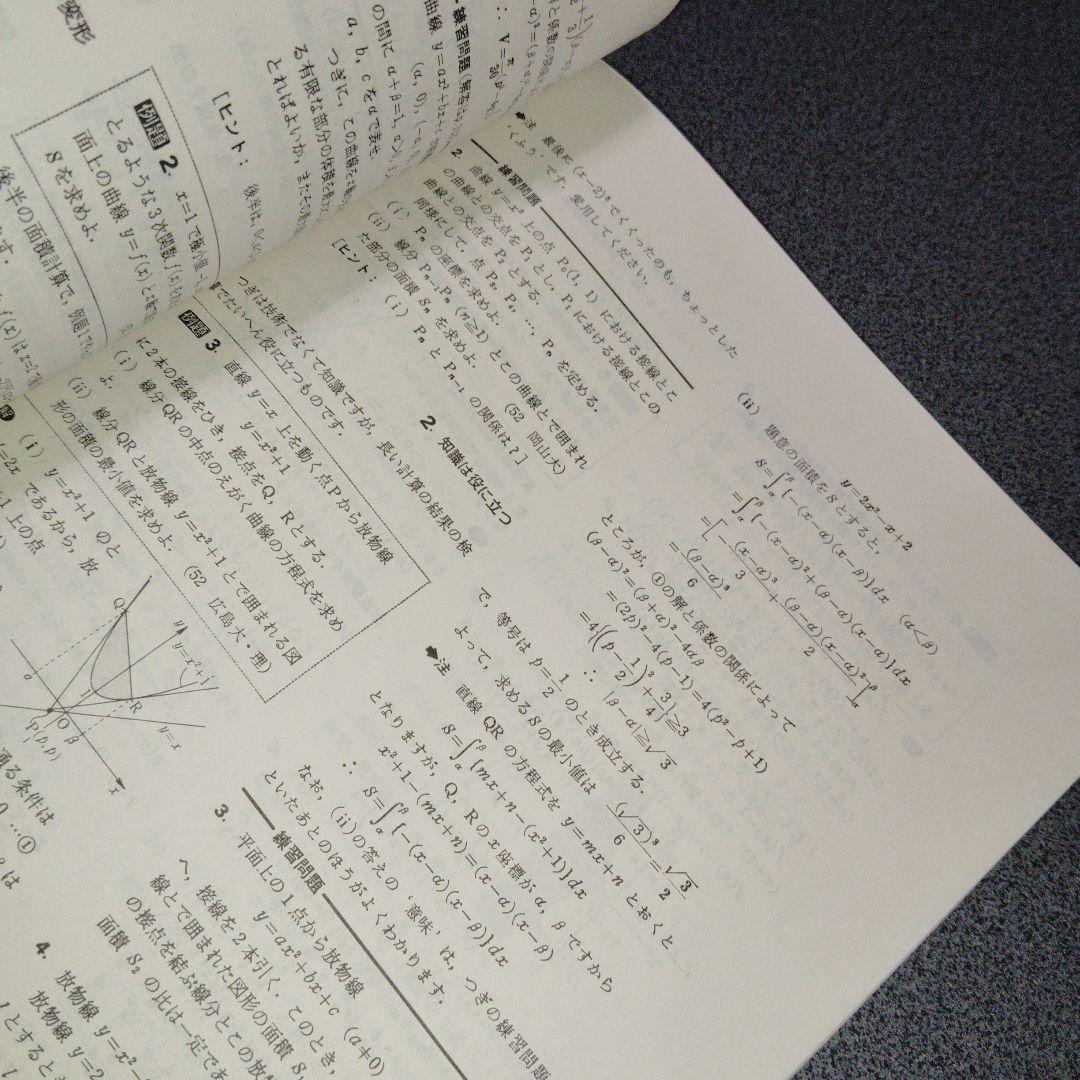 変形
例題 2. x=1で極小値
とるような3次関数 f(x)
面上の曲線 y=f(x) と
Sを求めよ.
後半の面積計算で, 例題1で
[ヒント: 後半は
練習問題
曲線 y=ax²+bx+c
(a, 0),
の間に α+β=1,
a, b, c をαで表せ.
つぎに, この曲線を
る有限な部分の体積を
とればよいか. また
◆注 最後に (x-2)³でくくったのも, ちょっとした
くふう, です. 愛用してください.
練習問題
2. 曲線 y=x³ 上の点 P₀(1, 1) における接線とこ
の曲線との交点を P₁ とし, P₁ における接線とこの
曲線との交点を P₂ とする.
同様にして, 点 P₃, P₄, …, Pₙ を定める.
(i) Pₙ の座標を求めよ.
(ii) 線分 Pₙ₋₁Pₙ (n≧1) とこの曲線とで囲まれ
た部分の面積 Sₙ を求めよ. (52 岡山大)
[ヒント: (i) Pₙ と Pₙ₋₁ の関係は?]
2. 知識は役に立つ
つぎは技術でなくて知識ですが, 長い計算の結果の検
算でたいへん役に立つものです.
例題 3. 直線 y=x 上を動く点Pから放物線
y=x²+1
に2本の接線をひき, 接点をQ, Rとする.
(i) 線分QRの中点のえがく曲線の方程式を求め
よ.
(ii) 線分QRと放物線 y=x²+1 とで囲まれる図
形の面積の最小値を求めよ. (52 広島大・理)
(i) y=x²+1 のと
=2x であるから, 放
+1 上の点
Q
y
y=x²+1
α
O
R
β
y=x
P(p,p)
x
通る条件は
0 …①
y=2x²-x+2
(ii) 題意の面積をSとすると,
S=∫_α^β{-(x-α)(x-β)}dx (α<β)
=∫_α^β{-(x-α)²+(β-α)(x-α)}dx
=[-(x-α)³/3+(β-α)(x-α)²/2]_α^β
=(β-α)³/6
ところが, ①の解と係数の関係によって
(β-α)²=(β+α)²-4αβ
=(2p)²-4(p-1)=4(p²-p+1)
=4{(p-1/2)²+3/4}≧3
∴ |β-α|≧√3
で, 等号は p=1/2 のとき成立する.
よって, 求めるSの最小値は (√3)³/6=√3/2
◆注 直線 QR の方程式を y=mx+n とおくと,
S=∫_α^β{mx+n-(x²+1)}dx
となりますが, Q, Rのx座標が α, β ですから
x²+1-(mx+n)=(x-α)(x-β)
∴ S=∫_α^β{-(x-α)(x-β)}dx
なお, (ii)の答えの '意味' は, つぎの練習問題
といたあとのほうがよくわかります.
練習問題
3. 平面上の1点から放物線
y=ax²+bx+c (a≠0)
へ, 接線を2本引く. このとき,
線とで囲まれた図形の面積 S₁
の接点を結ぶ線分とこの放物
面積 S₂ の比は一定であ
4. 放物線 y=x²-
放物線 y=2
lとするとき